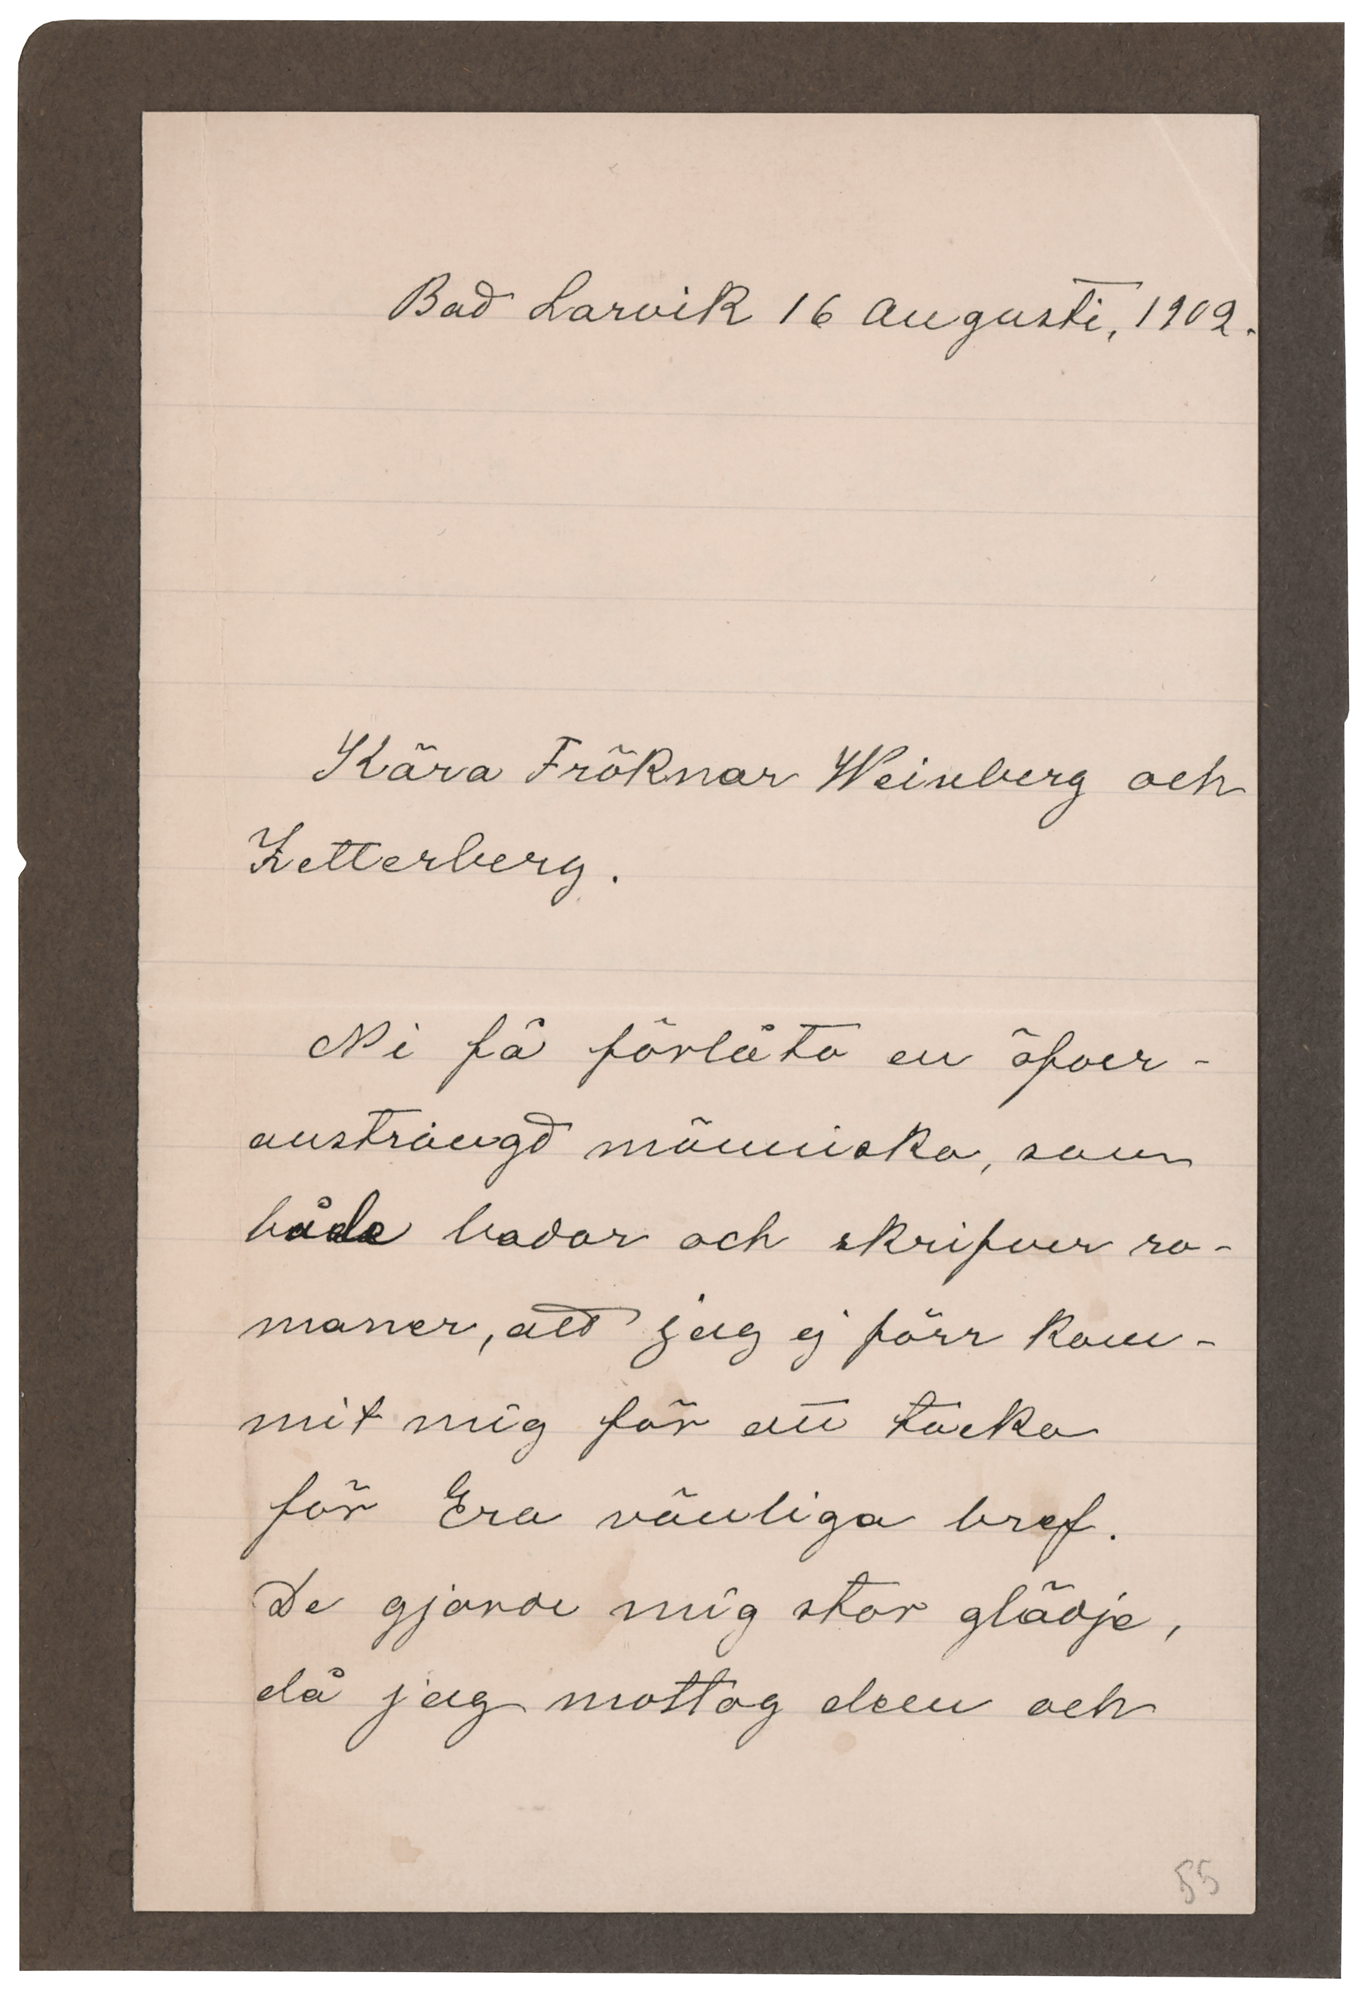 Bad Larvik 16 Augusti, 1902.
Kära Fröknar Weinberg och
Zetterberg.
Ni få förlåta en öfver-
ansträngd människa, som
både badar och skrifver ro-
maner, att jag ej förr kom-
mit mig för att tacka
för Era vänliga bref.
De gjorde mig stor glädje,
då jag mottog dem och
55